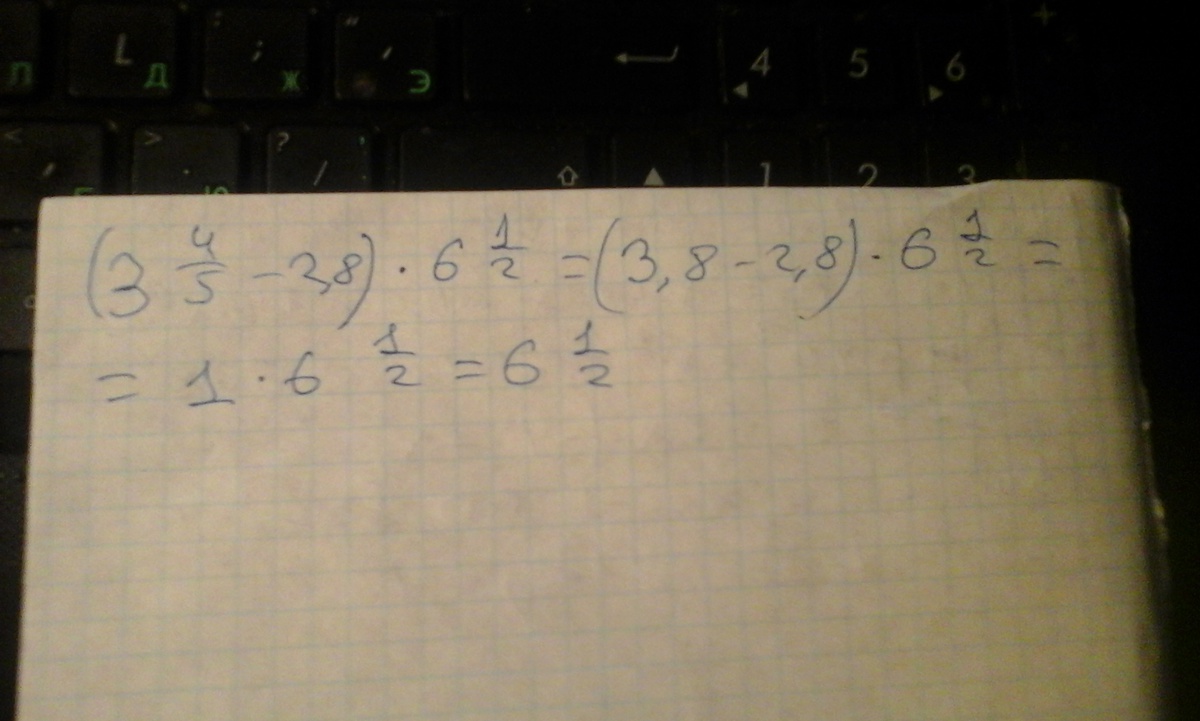 L Д ; : Ж " ' Э ← 4 ◀ 5 6 ▶ +
< , > . ? / ⇧ ▲ 1 2 3
(3 4/5 - 2,8) · 6 1/2 = (3,8 - 2,8) · 6 1/2 =
= 1 · 6 1/2 = 6 1/2